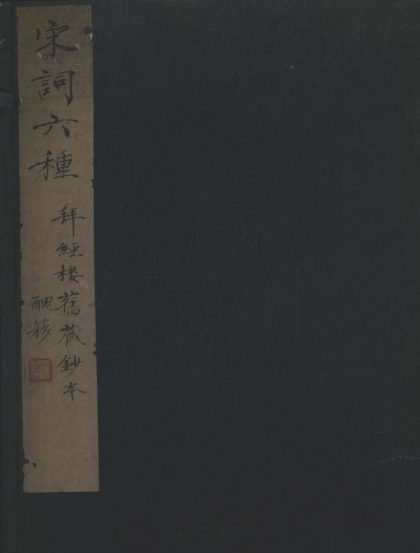 宋詞六種
拜經樓舊藏鈔本